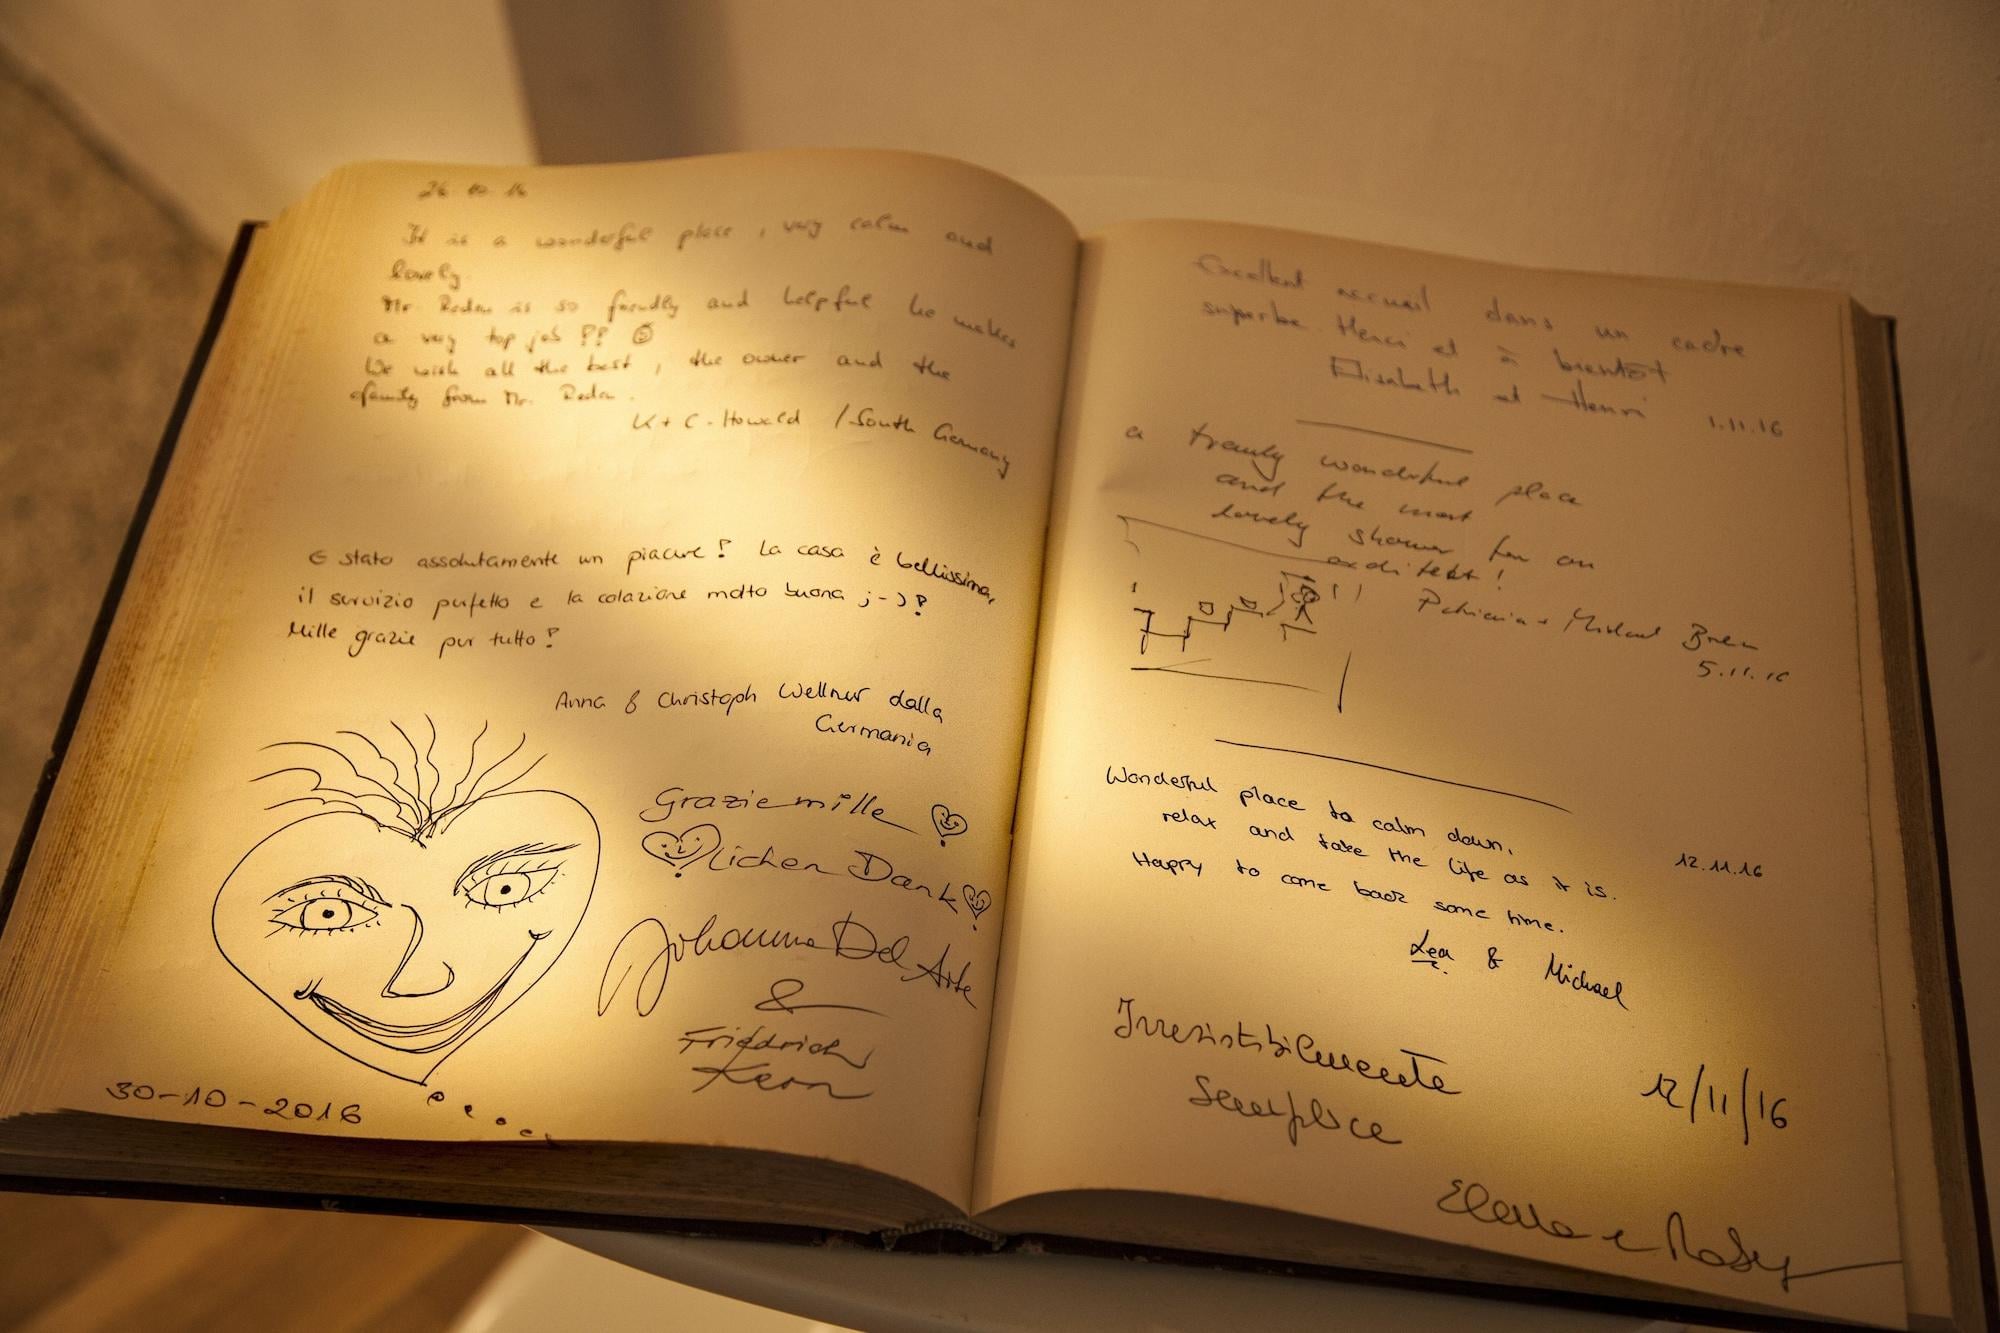 26.10.16
It is a wonderful place, very calm and
lovely.
Mr. Redan is so friendly and helpful he makes
a very top job !! ☺
We wish all the best, the owner and the
family from Mr. Redan.
K + C. Howald / South Germany
E stato assolutamente un piacere! La casa è bellissima,
il servizio perfetto e la colazione molto buona ;-)!
Mille grazie per tutto!
Anna & Christoph Wellner dalla
Germania
Grazie mille
lichen Dank
Johanna Del Arte
&
Friedrich
Kern
30-10-2016
Excellent accueil dans un cadre
superbe. Merci et à bientôt
Elisabeth et Henri 1.11.16
a wonderful place
and the most
lovely shower for an
architekt!
+ Michael
5.11.16
Wonderful place to calm down,
relax and take the life as it is.
12.11.16
Happy to come back some time.
Lea & Michael
Irresistibilmente
Semplice
12/11/16
Elena e Roby